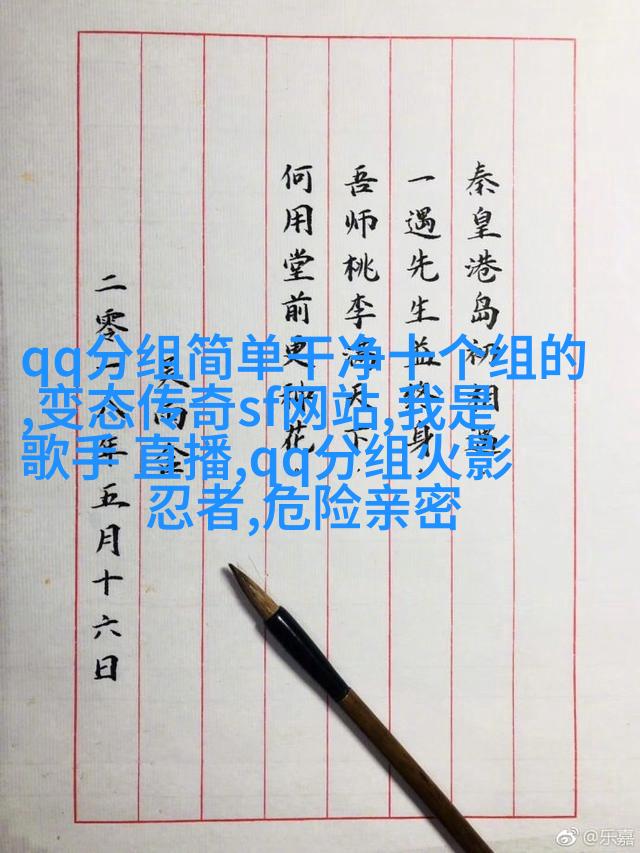 秦皇港岛初相
一遇先生益终身
吾师桃李满天下
何用堂前更种花
吴雨金
二零一八年五月十六日
qq分组简单干净十个组的
,变态传奇sf网站,我是
歌手 直播,qq分组火影
忍者,危险亲密
@乐嘉